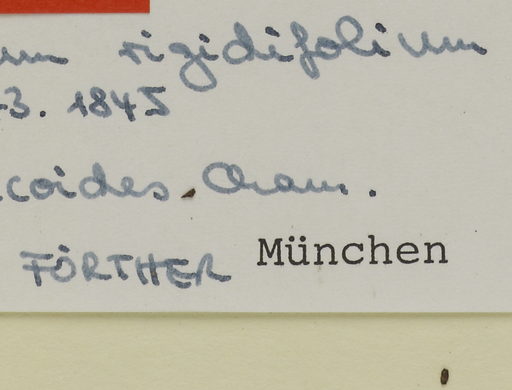 um rigidifolium
3. 1845
coides Cham.
FÖRTHER München